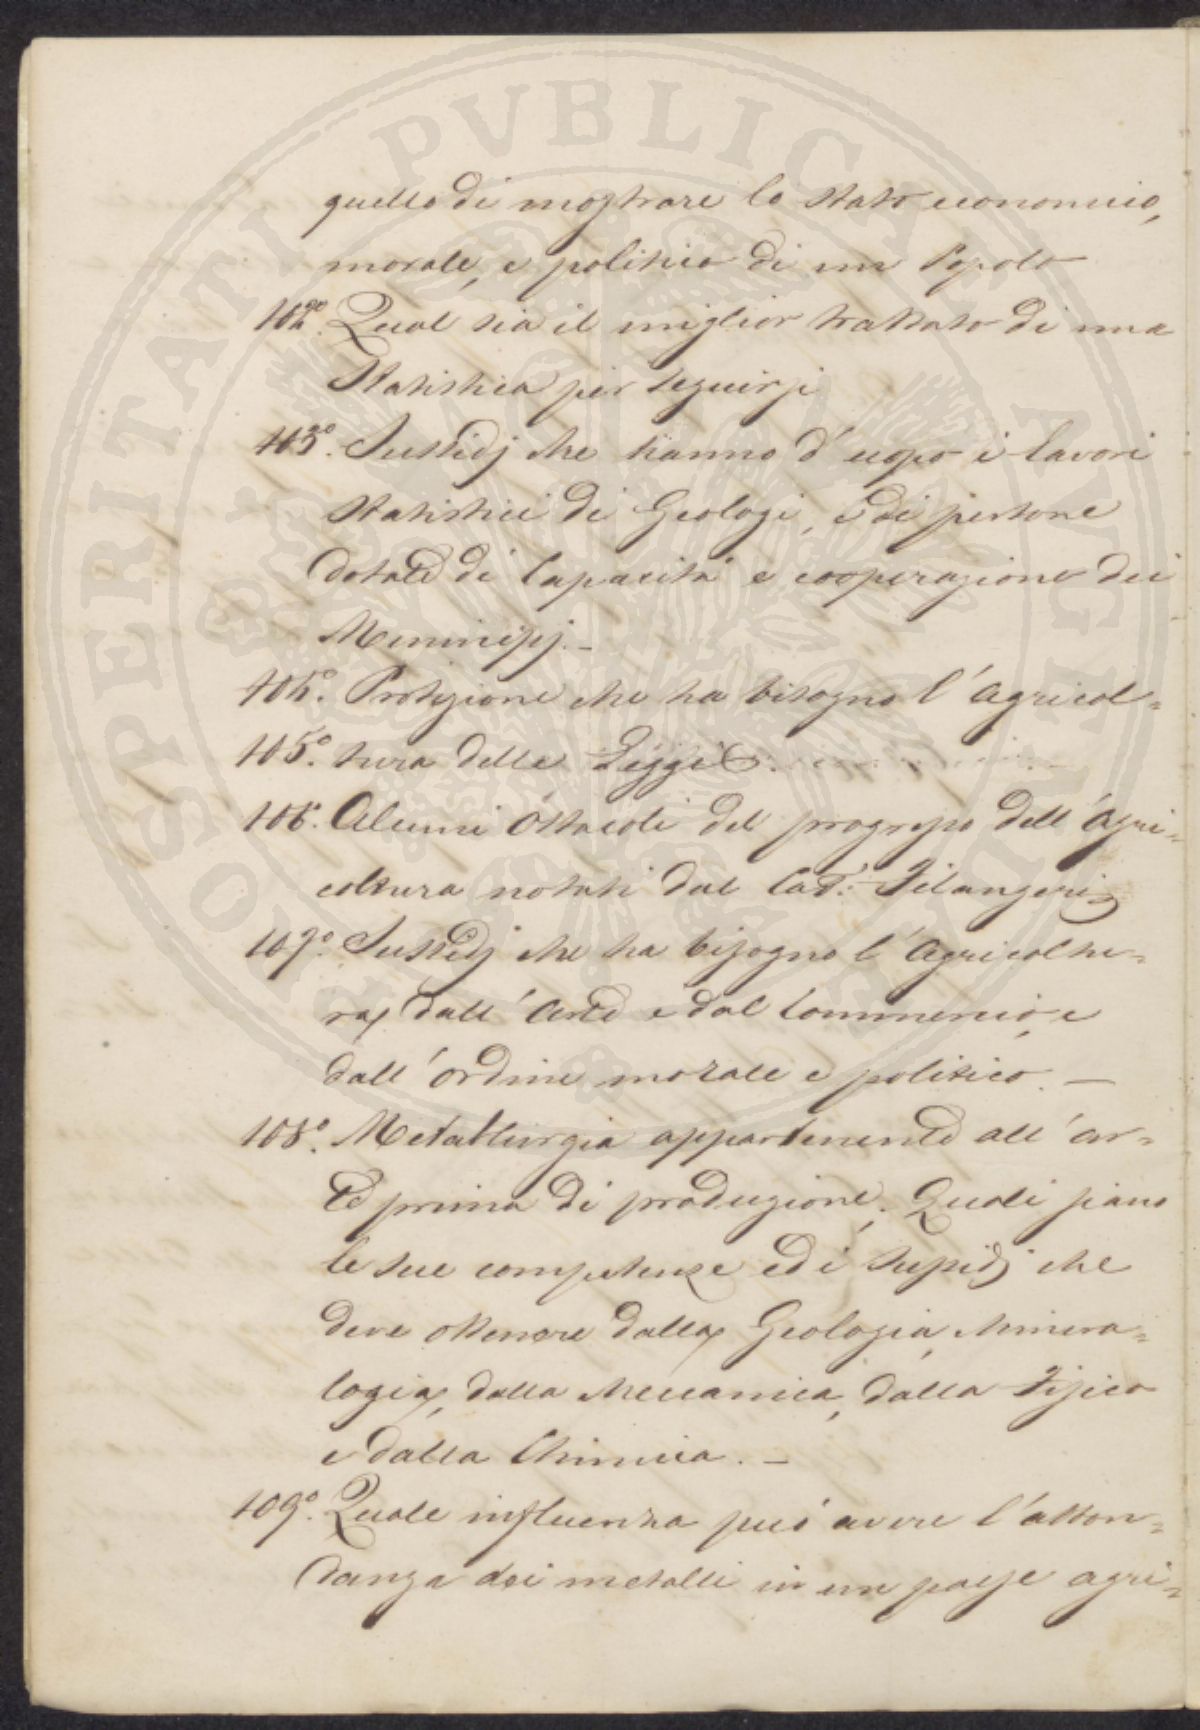 quello di mostrare lo Stato economico,
morale, e politico di un Popolo
102º. Qual sia il miglior trattato di una
Statistica per seguirsi
103º. Sussidj che hanno d'uopo i lavori
statistici di Geologi, e di persone
dotate di Capacità e cooperazione dei
Municipj. –
104º. Protezione che ha bisogno l'agricol=
105º. tura delle Leggi.
106º. Alcuni Ostacoli del progresso dell'Agri=
coltura notati dal Cav: Filangeri
107º. Sussidj che ha bisogno l'Agricoltu=
ra dall'Arte e dal Commercio, e
dall'ordine morale e politico. –
108º. Metallurgia appartenente all'ar=
te prima di produzione. Quali siano
le sue competenze ed i sussidj che
deve ottenere dalla Geologia, Minera=
logia, dalla Meccanica, dalla Fisica
e dalla Chimica. –
109º. Quale influenza può avere l'abbon=
danza dei metalli in un paese agri=
PROSPERITATI PVBLICAE AVGENDAE